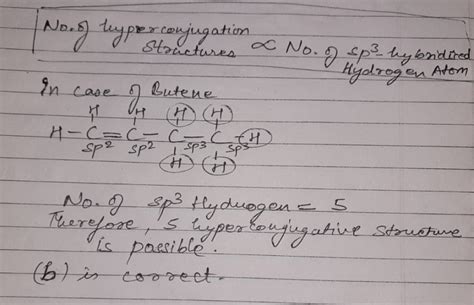 No. of hyperconjugation
Structures ∝ No. of sp3-hybridized
Hydrogen Atom
In case of Butene
H H H H
H-C=C-C-C-H
sp2 sp2 sp3 sp3
H H
No. of sp3 Hydrogen = 5
Therefore, 5 hyperconjugative structure
is possible.
(b) is correct.